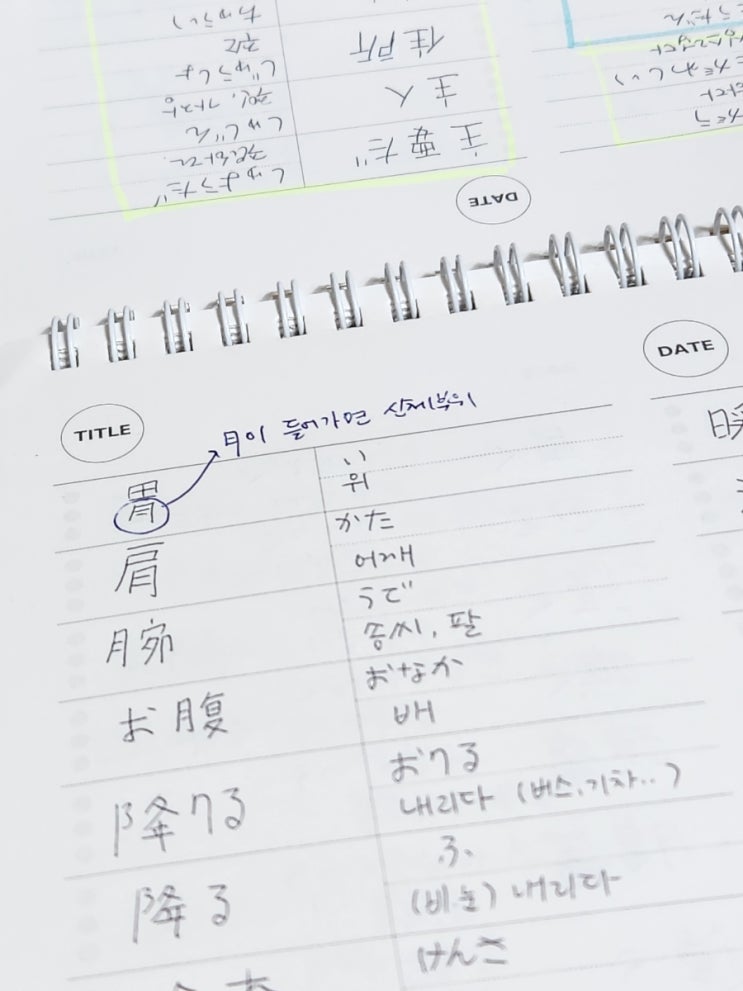 住所
じゅうしょ
主人
しゅじん
主要だ
しゅようだ
DATE
TITLE
DATE
月이 들어가면 신체부위
胃
い
위
肩
かた
어깨
腕
うで
솜씨, 팔
お腹
おなか
배
降りる
おりる
내리다 (버스, 기차..)
降る
ふ
(비눈) 내리다
けんこ